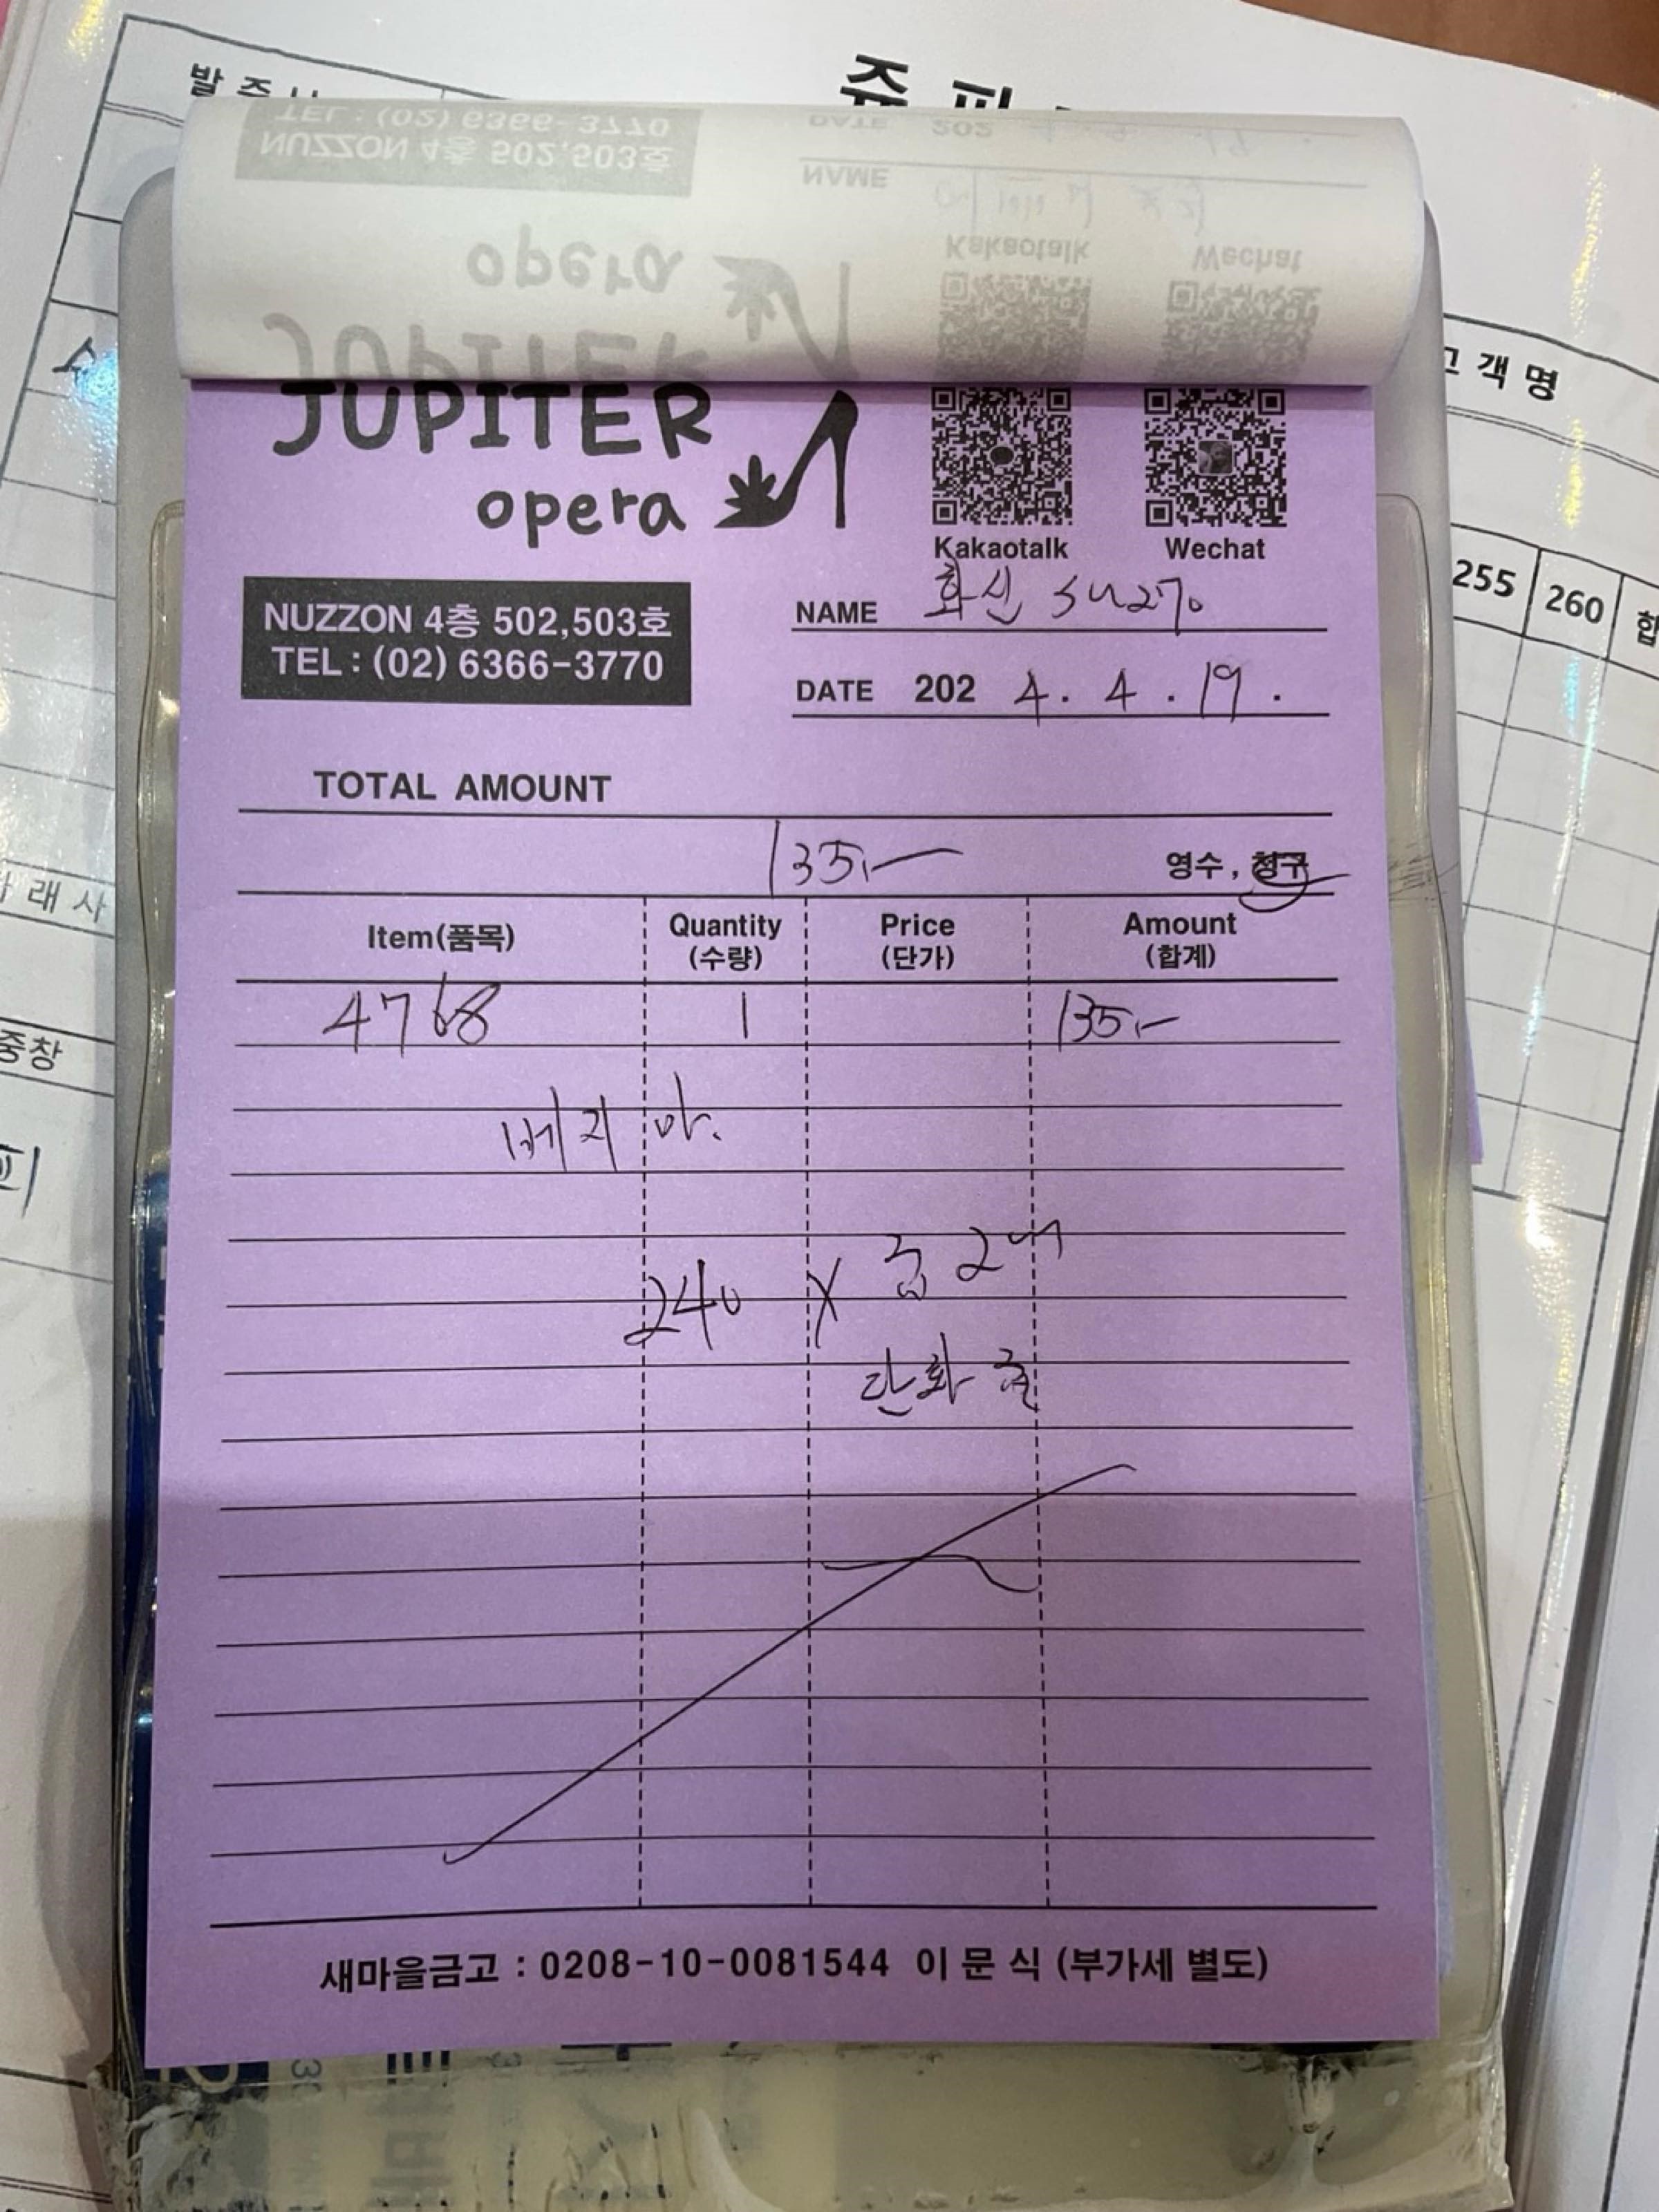 쥬피
TEL : (02) 6366-3770
NUZZON 4층 502,503호
DATE 202
NAME
Kakaotalk Wechat
opera
JUPITER
고객명
JUPITER
opera
Kakaotalk Wechat
255 260 합
NUZZON 4층 502,503호
TEL : (02) 6366-3770
NAME 화신
DATE 2024. 4. 19.
TOTAL AMOUNT
135,-
영수, 청구
래사
Item(품목) Quantity(수량) Price(단가) Amount(합계)
4768 1 135,-
중창
베지 아.
240 X 굽 2
단화 굽
새마을금고 : 0208-10-0081544 이문식 (부가세 별도)